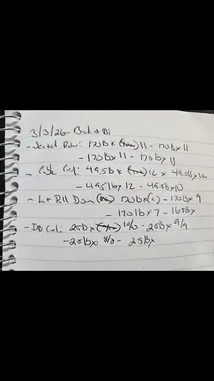 3/3/26 - Back + Bi
- Seated Row: 170lbx 11 - 170lbx 11
- 170lbx 11 - 170lbx 11
- 49.5lbx 12 x 49.5lbx 12
- 49.5lbx 12 - 49.5lbx10
- Lat Pull Down 170lbx - 170lbx 9
- 170lbx 7 - 165lbx
- DB Curl: 25lbx - 25lbx 9/9
- 25lbx - 25lbx